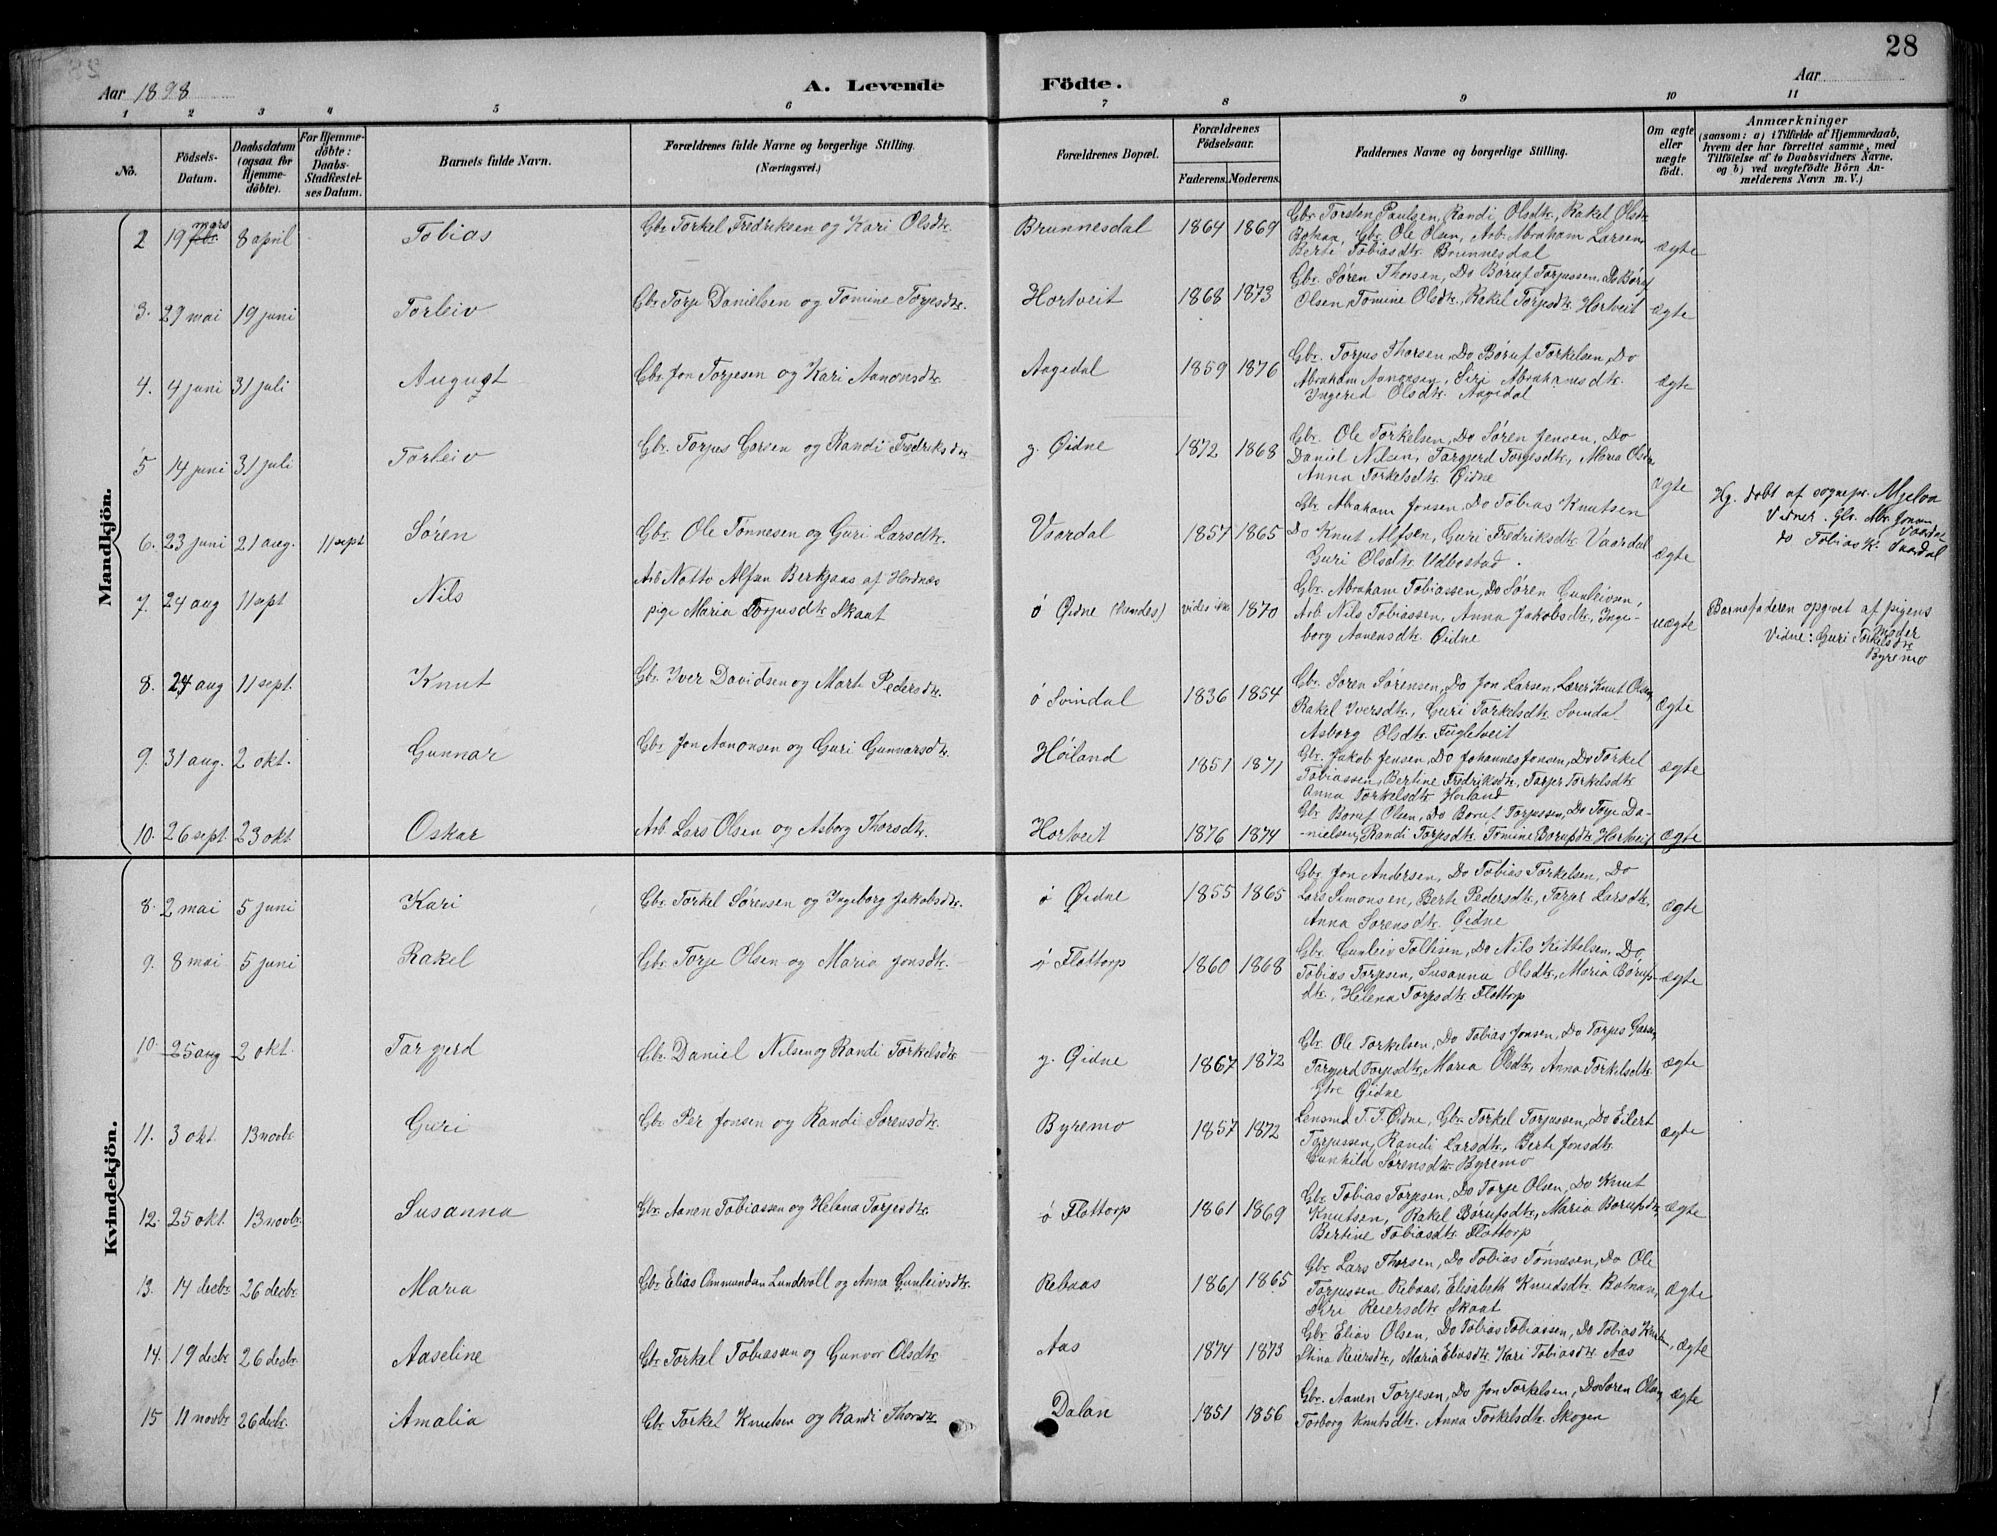 28
Aar 1898
A. Levende
Födte.
Aar
1 2 3 4 5 6 7 8 9 10 11
No.
Födsels-
Datum.
Daabsdatum
(ogsaa for
Hjemme-
döbte).
For Hjemme-
döbte:
Daabs-
Stadfæstel-
ses Datum.
Barnets fulde Navn.
Forældrenes fulde Navne og borgerlige Stilling.
(Næringsvei.)
Forældrenes Bopæl.
Forældrenes
Födselsaar.
Faderens. Moderens.
Faddernes Navne og borgerlige Stilling.
Om ægte
eller
uægte
født.
Anmærkninger
(saasom: a) i Tilfælde af Hjemmedaab,
hvem der har forrettet samme, med
Tilföielse af to Daabsvidners Navne,
og b) ved uægtefödte Börn An-
mælderens Navn m. V.)
Mandkjön.
2 19 febr. mars 8 april Tobias Gbr. Torkel Fredriksen og Kari Olsdtr. Brunnesdal 1864 1869 Gbr. Torsten Paulsen, Randi Olsdtr, Rakel Olsdtr
Botnan, Gbr. Ole Olsen, Arb. Abraham Larsen,
Berte Tobiasdtr. Brunnesdal ægte
3. 29 mai 19 juni Torleiv Gbr. Torje Danielsen og Tomine Torjesdtr. Hortveit 1868 1873 Gbr. Søren Thorsen, Do Børuf Torjussen, Do Børuf
Olsen, Tomine Olsdtr, Rakel Torjusdtr. Hortveit ægte
4. 4 juni 31 juli August Gbr. Jon Torjesen og Kari Aanonsdtr. Aagedal 1859 1876 Gbr. Torjus Thorsen, Do Børuf Torkelsen, Do
Abraham Aanonsen, Siri Abrahamsdtr.
Ingerid Olsdtr. Aagedal ægte
5 14 juni 31 juli Torleiv Gbr. Torjus Garsen og Randi Fredriksdtr y. Øidne 1872 1868 Gbr. Ole Torkelsen, Do Søren Jensen, Do
Daniel Nilsen, Targjerd Torjesdtr, Maria Olsdtr,
Anna Torkelsdtr. Øidne ægte
6. 23 juni 21 aug. 11 sept Søren Gbr. Ole Tønnesen og Guri Larsdtr. Vaardal 1857 1865 Gbr. Abraham Jonsen, Do Tobias Knutsen
Do Knut Alfsen, Guri Fredriksdtr. Vaardal
Guri Olsdtr. Udbostad. ægte
Hg. døbt af sognepr. Mjelva
Vidner: Gbr. Abr. Jonsen
Vaardal
do Tobias K. Vaardal
7. 24 aug 11 sept Nils Arb. Notto Alfsen Berkjaas af Hordnæs
pige Maria Torjusdtr. Skaat ø Øidne vides ikke 1870 Gbr. Abraham Tobiassen, Do Søren Gunleivsen,
Arb. Nils Tobiassen, Anna Jakobsdtr, Inge-
borg Aanensdtr. Øidne uægte
Barnefaderen opgivet af pigens
moder
Vidne: Guri Torkelsdtr.
Byremo
8. 24 aug 11 sept. Knut Gbr. Iver Davidsen og Marte Pedersdtr. ø Svindal 1836 1854 Gbr. Søren Sørensen, Do Jon Larsen, Lærer Knut Olsen,
Rakel Iversdtr., Guri Torkelsdtr. Svindal
Asborg Olsdtr. Fugletveit ægte
9. 31 aug. 2 okt. Gunnar Gbr. Jon Aanonsen og Guri Gunnarsdtr. Høiland 1851 1871 Gbr. Jakob Jensen, Do Johannes Jonsen, Do Torkel
Tobiassen, Bertine Fredriksdtr, Tarjer Torkelsdtr
Anna Torkelsdtr. Høiland ægte
10. 26 sept. 23 okt Oskar Arb. Lars Olsen og Asborg Thorsdtr. Hortveit 1876 1874 Gbr. Børuf Olsen, Do Børuf Torjussen, Do Torje Da-
nielsen, Randi Torjusdtr. Tomine Børufsdtr. Hortveit ægte
Kvindekjön.
8. 2 mai 5 juni Kari Gbr. Torkel Sørensen og Ingeborg Jakobsdtr. ø Øidne 1855 1865 Gbr. Jon Andersen, Do Tobias Torkelsen, Do
Lars Simonsen, Berte Pedersdtr, Tarjer Larsdtr,
Anna Sørensdtr. Øidne ægte
9. 8 mai 5 juni Rakel Gbr. Torje Olsen og Maria Jonsdtr. ø Flottorp 1860 1868 Gbr. Gunleiv Tollisen, Do Nils Kittelsen, Do
Tobias Torjesen, Susanna Olsdtr, Maria Børufs-
dtr, Helena Torjesdtr. Flottorp ægte
10. 25 aug 2 okt. Targjerd Gbr. Daniel Nilsen og Randi Torkelsdtr. y. Øidne 1867 1872 Gbr. Ole Torkelsen, Do Tobias Jonsen, Do Torjus Garsen,
Targjerd Torjesdtr, Maria Olsdtr, Anna Torkelsdtr
Ytre Øidne ægte
11. 3 okt. 13 novbr Guri Gbr. Per Jonsen og Randi Sørensdtr. Byremo 1857 1872 Lensmd T. T. Øidne, Gbr. Torkel Torjussen, Do Eilert
Torjussen, Randi Larsdtr, Berte Jonsdtr.
Gunhild Sørensdtr. Byremo ægte
12. 25 okt. 13 novbr. Susanna Gbr. Aanen Tobiassen og Helena Torjesdtr. ø Flottorp 1861 1869 Gbr. Tobias Torjesen, Do Torje Olsen, Do Knut
Knutsen, Rakel Børufsdtr, Maria Børufsdtr,
Bertine Tobiasdtr. Flottorp ægte
13. 14 decbr 26 decbr Maria Gbr. Elias Ommundsen Lundvoll og Anna Gunleivsdtr. Rebaas 1861 1865 Gbr. Lars Thorsen, Do Tobias Tønnesen, Do Ole
Torjussen Rebaas, Elisabeth Knudsdtr. Botnan,
Siri Reiersdtr. Skaat ægte
14. 19 decbr 26 decbr Aaseline Gbr. Torkel Tobiassen og Gunvor Olsdtr. Aas 1874 1873 Gbr. Elias Olsen, Do Tobias Tobiassen, Do Tobias Knutsen,
Stina Reiersdtr, Maria Eliasdtr. Kari Tobiasdtr. Aas ægte
15 11 novbr 26 decbr. Amalia Gbr. Torkel Knutsen og Randi Thorsdtr Dalan 1851 1856 Gbr. Aanen Torjesen, Do Jon Torkelsen, Do Søren Olsen,
Torborg Knutsdtr. Anna Torkelsdtr. Skogen ægte